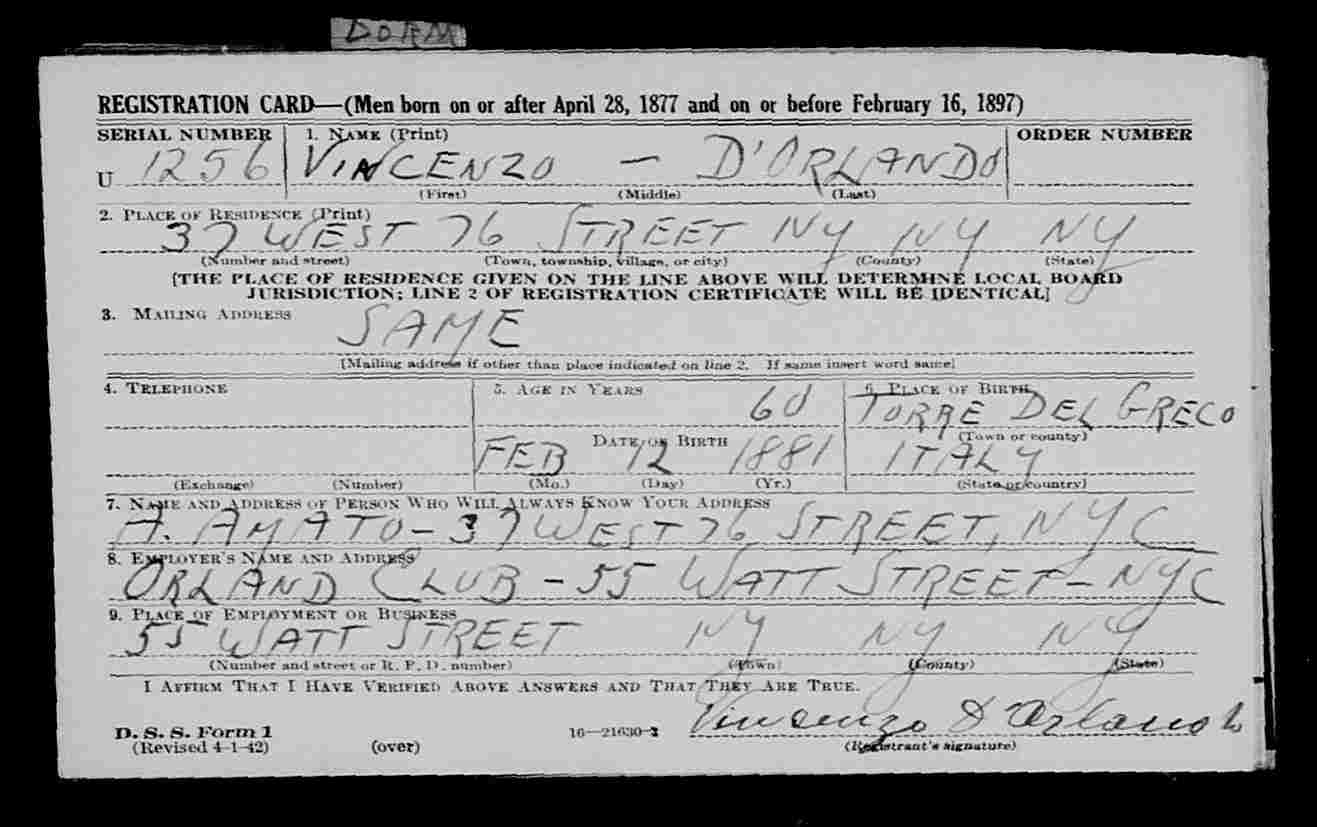 DORM
REGISTRATION CARD—(Men born on or after April 28, 1877 and on or before February 16, 1897)
SERIAL NUMBER 1. NAME (Print) ORDER NUMBER
U 1256 VINCENZO — D'ORLANDO
(First) (Middle) (Last)
2. PLACE OF RESIDENCE (Print)
37 WEST 76 STREET NY NY NY
(Number and street) (Town, township, village, or city) (County) (State)
[THE PLACE OF RESIDENCE GIVEN ON THE LINE ABOVE WILL DETERMINE LOCAL BOARD
JURISDICTION; LINE 2 OF REGISTRATION CERTIFICATE WILL BE IDENTICAL]
3. MAILING ADDRESS
SAME
[Mailing address if other than place indicated on line 2. If same insert word same]
4. TELEPHONE 5. AGE IN YEARS 6. PLACE OF BIRTH
60 TORRE DEL GRECO
DATE OF BIRTH (Town or county)
FEB 12 1881 ITALY
(Exchange) (Number) (Mo.) (Day) (Yr.) (State or country)
7. NAME AND ADDRESS OF PERSON WHO WILL ALWAYS KNOW YOUR ADDRESS
A. AMATO - 37 WEST 76 STREET, NYC
8. EMPLOYER'S NAME AND ADDRESS
ORLAND CLUB - 55 WATT STREET - NYC
9. PLACE OF EMPLOYMENT OR BUSINESS
55 WATT STREET NY NY NY
(Number and street or R. F. D. number) (Town) (County) (State)
I AFFIRM THAT I HAVE VERIFIED ABOVE ANSWERS AND THAT THEY ARE TRUE.
Vincenzo D'Orlando
D. S. S. Form 1
(Revised 4-1-42) (over) 16—21630-2 (Registrant's signature)